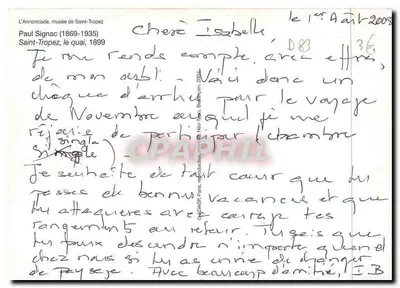 L'Annonciade, musée de Saint-Tropez
Paul Signac (1869-1935)
Saint-Tropez, le quai, 1899
le 1er Août 2008
Chère Isabelle
D83
3€
Je me rends compte, avec effroi,
de mon oubli. Voici donc un
chèque d'arrhes pour le voyage
de Novembre auquel je me
réjouie de participer (chambre
single)
CPAPHIL
Je souhaite de tout cœur que tu
passes de bonnes vacances et que
tu attaqueras avec courage tes
rangements au retour. Tu sais que
tu peux descendre n'importe quand
chez nous si tu as envie de changer
de paysage. Avec beaucoup d'amitié, I.B